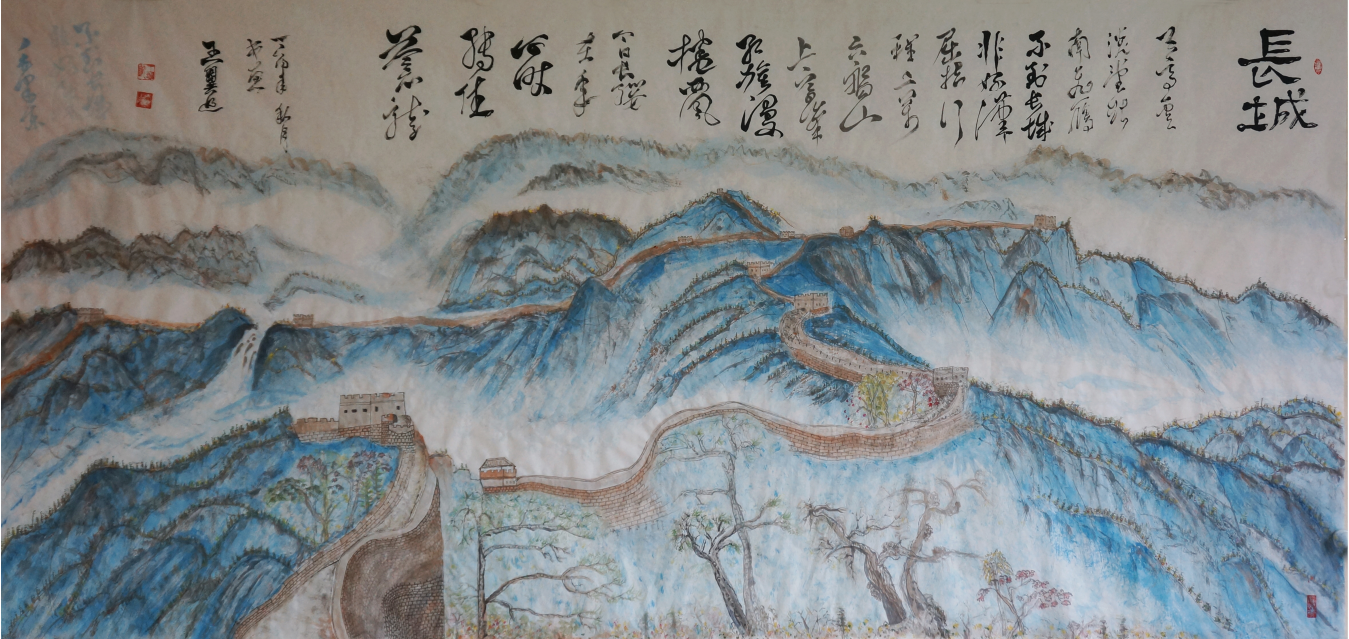 長城
天高雲
淡望斷
南飛雁
不到长城
非好漢
屈指行
程二万
六盘山
上高峰
红旗漫
捲西風
今日長纓
在手
何时
縛住
蒼龍
年秋月